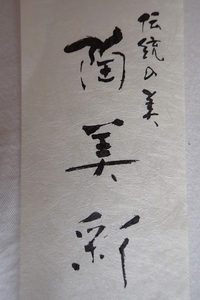 伝統の美
陶美彩